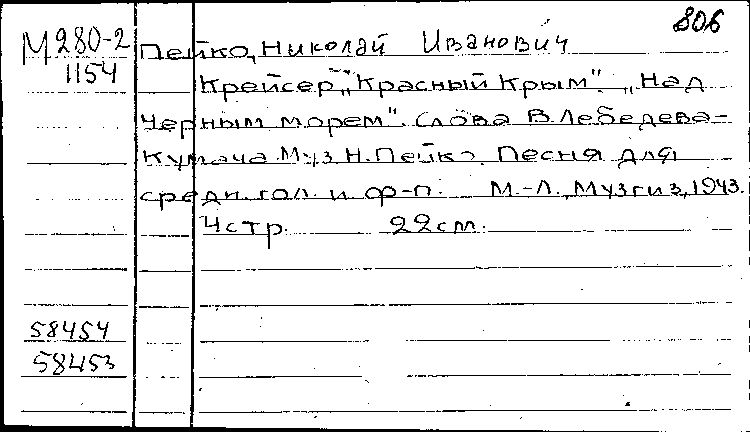 806
М280-2
1154
Пейко, Николай Иванович
Крейсер „Красный Крым". „Над
Черным морем". Слова В. Лебедева-
Кумача. Муз. Н. Пейко. Песня для
средн. гол. и ф-п. М.-Л., Музгиз, 1943.
4 стр. 22 см.
58454
58453